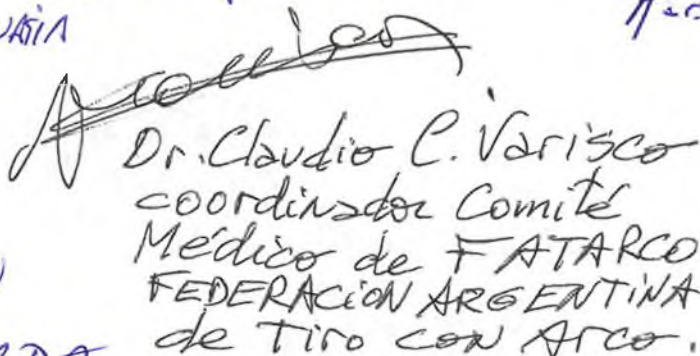 Dr. Claudio C. Varisco
coordinador Comité
Médico de FATARCO
FEDERACION ARGENTINA
de Tiro con Arco.